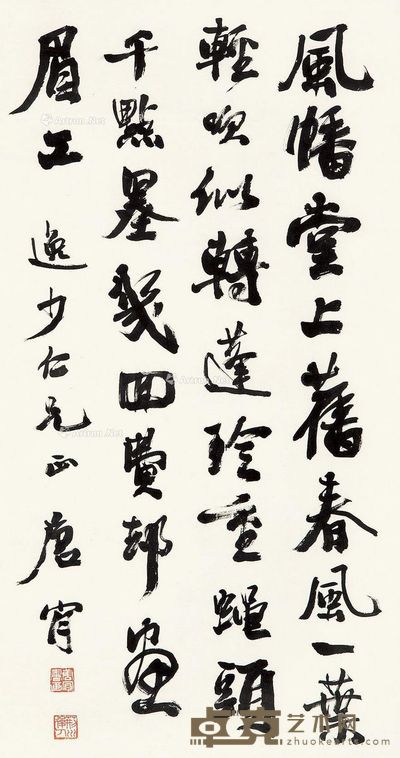 風幡堂上舊春風一葉
輕吹似轉蓬珍重蠅頭
千點墨幾回費却畫
眉工 逸少仁兄正 唐肎
卓克艺术网
zhuokearts.com
Artron.Net